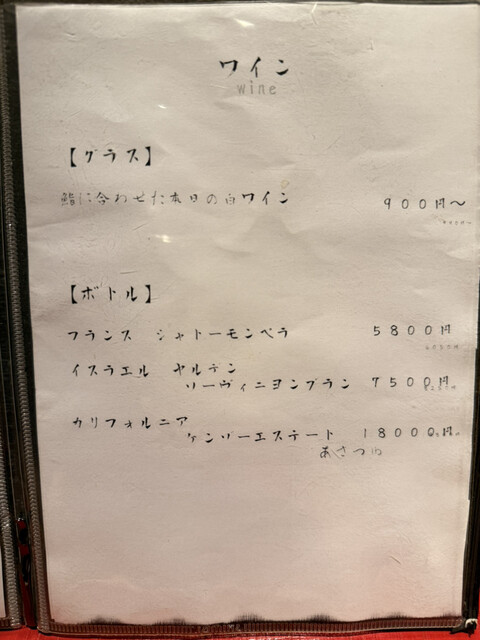 ワイン
wine
【グラス】
鮨に合わせた本日の白ワイン 900円～
【ボトル】
フランス シャトーモンペラ 5800円
イスラエル ヤルデン
ソーヴィニヨンブラン 7500円
カリフォルニア
ケンゾーエステート 18000円
あさつゆ